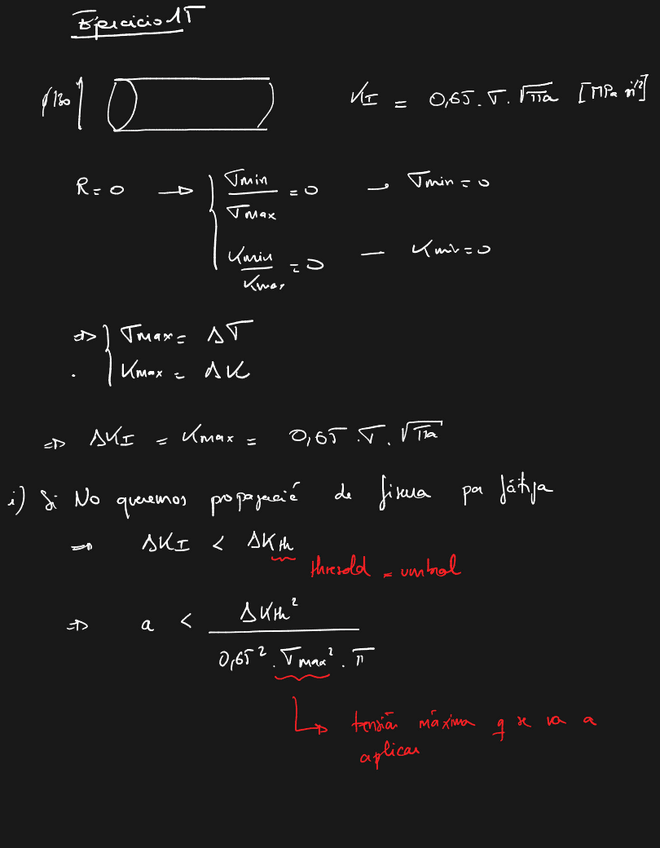 Ejercicio 15
φ130 K_I = 0,65 . σ . √πa [MPa m^1/2]
R = 0 → σmin / σmax = 0 → σmin = 0
Kmin / Kmax = 0 — Kmin = 0
⇒ σmax = Δσ
. Kmax = ΔK
⇒ ΔK_I = Kmax = 0,65 . σ . √πa
i) Si No queremos propagació de fisura por fátiga
⇒ ΔK_I < ΔKth
threshold = umbral
⇒ a < ΔKth² / 0,65² . σmax² . π
↳ tensión máxima q se va a
aplicar